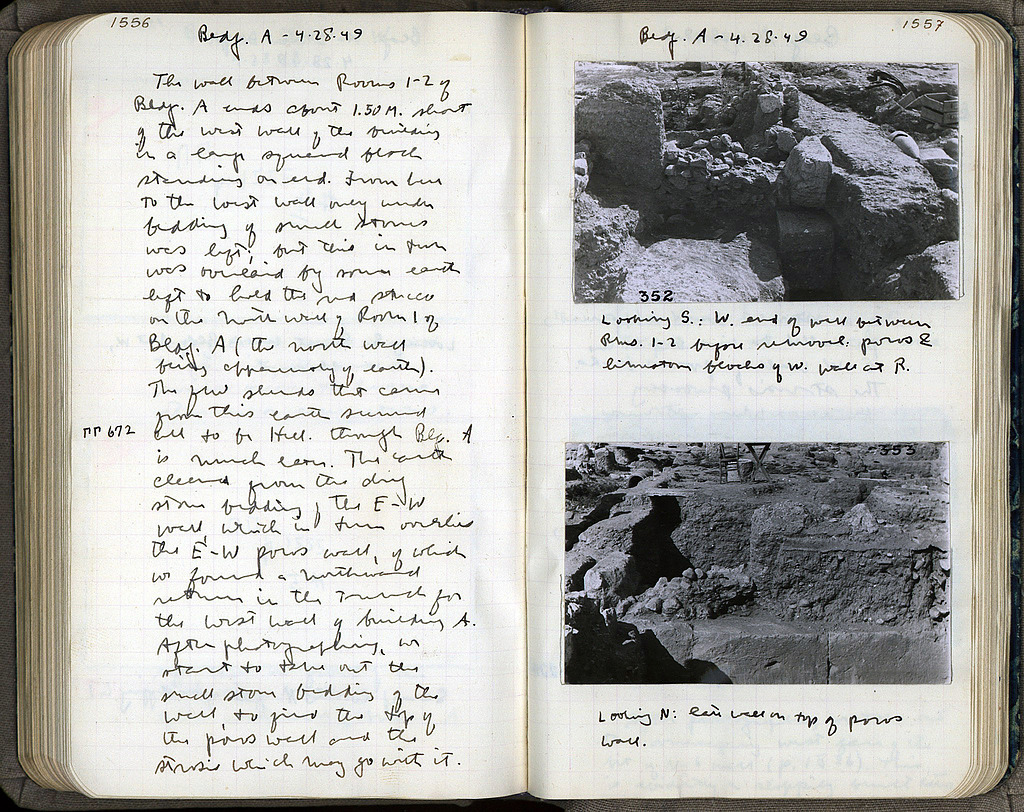 1556
Bldg. A - 4.28.49
The wall between Rooms 1-2 of
Bldg. A ends about 1.50 M. short
of the west wall of the building
in a large squared block
standing on end. From here
to the west wall only under
bedding of small stones
was left; but this in turn
was overlaid by some earth
left to hold the red stucco
on the north wall of Room 1 of
Bldg. A (the north wall
being apparently of earth).
The few sherds that came
from this earth seemed
ΠΠ 672 all to be Hell. though Bldg. A
is much earlier. The earth
cleared from the dry
stone bedding of the E-W
wall, which in turn overlies
the E-W poros wall, of which
we found a northward
return in the trench for
the west wall of building A.
After photographing, we
start to take out the
small stone bedding of the
wall, to find the top of
the poros wall and the
strosis which may go with it.
1557
Bldg. A - 4.28.49
352
Looking S.: W. end of wall between
Rms. 1-2 before removal: poros &
limestone blocks of W. wall at R.
353
Looking N: late wall on top of poros
wall.